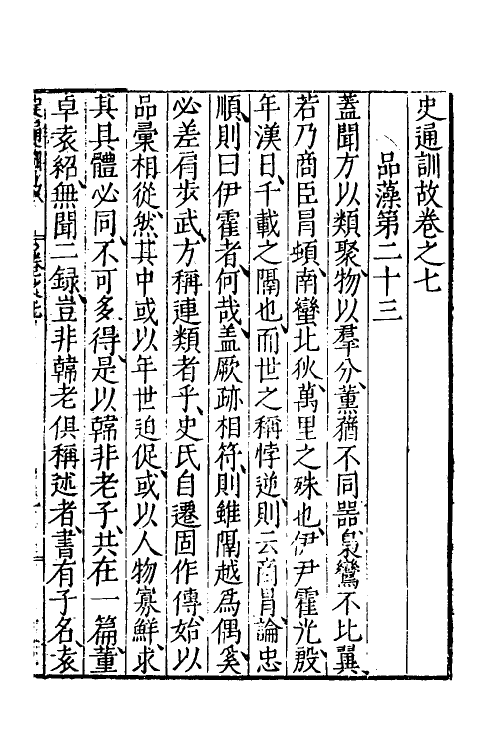 史通訓故卷之七
品藻第二十三
蓋聞方以類聚、物以羣分、薰蕕不同器、梟鸞不比翼、
若乃商臣冐頓、南蠻北狄、萬里之殊也、伊尹霍光、殷
年漢日、千載之隔也、而世之稱悖逆、則云商冐、論忠
順、則曰伊霍者、何哉、盖厥跡相符、則雖隔越爲偶、奚
必差肩步武、方稱連類者乎、史氏自遷固作傳、始以
品彙相從、然其中或以年世迫促、或以人物寡鮮、求
其具體必同、不可多得、是以韓非老子、共在一篇、董
卓袁紹、無聞二録、豈非韓老俱稱述者、書有子名、袁